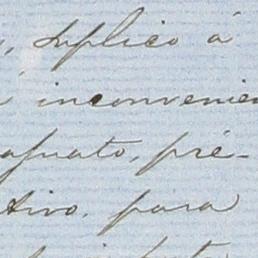 , suplico á
inconvenien
afuato, pré-
tivo. para